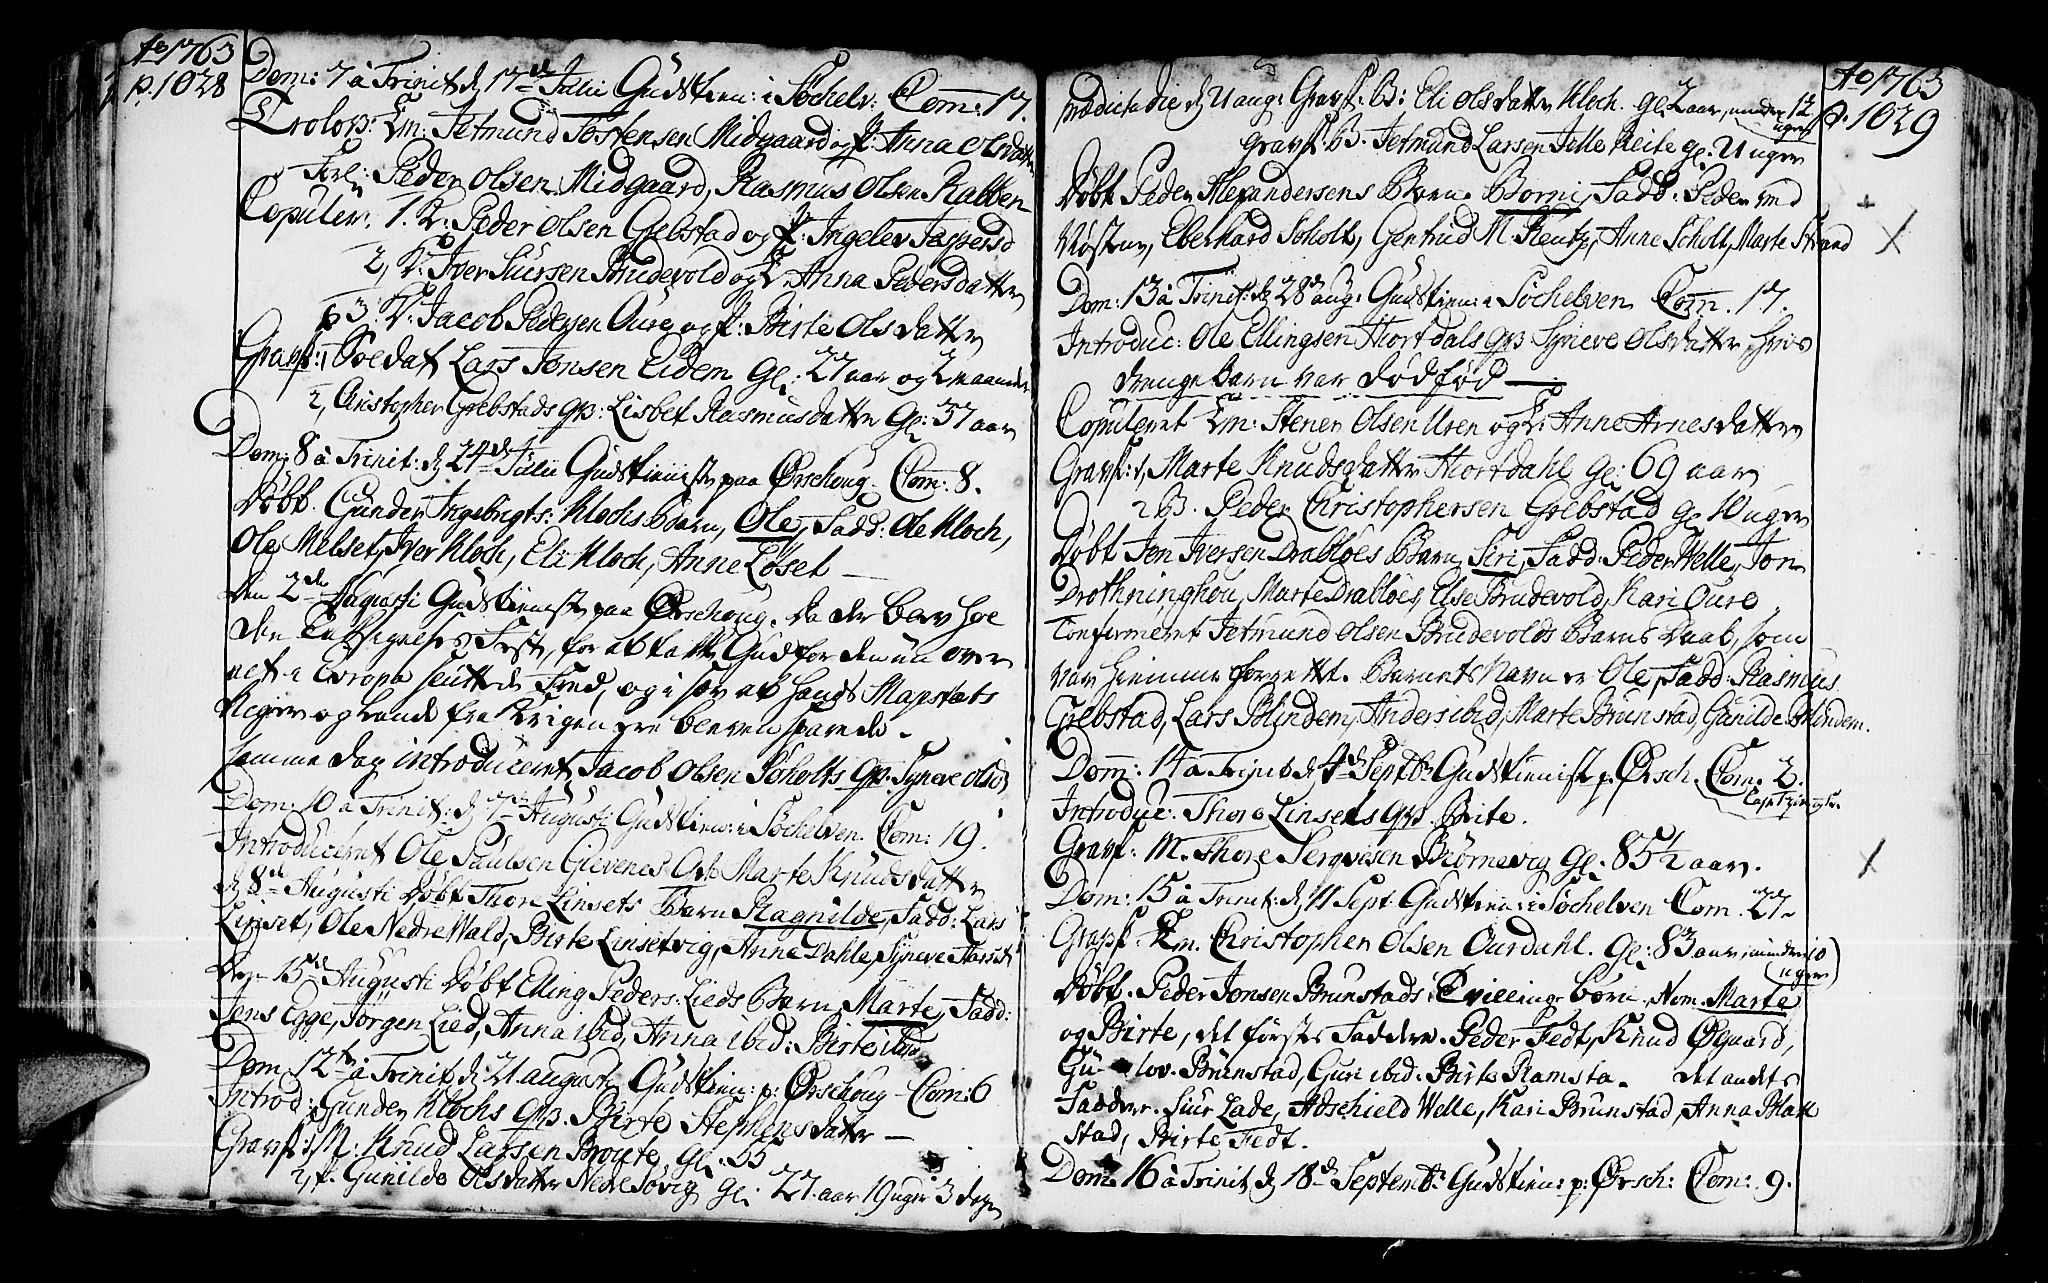 Ao 1763
p. 1028
Dom: 7 à Trinit. d 17de Julii Gudstien: i Søchelv: Com: 17.
Trolov: Em: Jetmund Tostensen Midgaard og P: Anna Olsdatter
Forl: Peder Olsen Midgaard, Rasmus Olsen Rabben
Copuler: 1. E: Peder Olsen Grebstad og P: Ingelev Jaspersd
2, E: Iver Siursen Brudevold og E. Anna Pedersdatter
3. E: Jacob Pedersen Oure og P: Birte Olsdatter
Gravf: 1 Soldat Lars Jonsen Eidem Gl: 27 aar og 2 maaneder
2, Christopher Grebstads qv: Lisbet Rasmusdatter Gl: 37 aar
Dom: 8 à Trinit: d 24de Julii Gudstienist paa Ørschoug. Com: 8.
Døbt. Gunder Ingebrigts: Klochs Barn, Ole, Fadd: Ole Kloch,
Ole Melset, Iver Kloch, Eli Kloch, Anne Løset
Den 2den Augusti Gudstieniste paa Ørschoug, da der blev hoe
den Tacksigelses Fest, for at takke Gud for den un over
alt i Evropa sluttede Fred, og i sær at Hands Mayestæts
Riger og Lande fra Krigen ere bleven sparede.
Samme dag introduceret Jacob Olsen Søholts qv. Syneve Olsd
Dom: 10 à Trinit: d 7de Augusti Gudstien: i Søchelven. Com: 19.
Introduceret Ole Paulsen Gievenes Qv. Marte Knudsdatter
d 8de Augusti Døbt Thore Linsets Barn Ragnilde, Fadd: Lars
Linset, Ole Nedre Wald, Birte Linsetvig, Anne Dahle, Syneve
Den 15de Augusti Døbt Elling Peders: Lieds Barn Marte, Fadd:
Jens Egge, Jørgen Lied, Anna ibid, Anna ibid: Birte ibid
Dom 12te à Trinit d 21 augusti Gudstien: p: Ørschoug Com: 6
Introd: Gunder Klochs qv. Birte Stephensdatter
Gravf: 1, M: Knud Larsen Broute Gl. 55
2, P. Gunilde Olsdatter Nedre Søvig Gl: 27 aar 19 uger 3 dage
Ao 1763
p. 1029
prædicto die d 21 aug: Gravf: B: Eli Olsdatter Kloch. Gl: 2 aar, minder 12
uger
Gravf. B. Jetmund Larsen Jelle Reite Gl. 11 uger
Døbt Peder Alexandersens Barn Borni, Fadd: Peder ved
Nøstev, Eberhard Soholt, Gertrud M. Rentz, Anne Scholt, Marte Strand
Dom: 13 à Trinit: d 28de aug: Gudstien: i Søchelven Com. 17.
Introduc: Ole Ellingsen Hiortdals qv. Syneve Olsdatter, hvis
drenge Barn var død fød
Copuleret Em: Stener Olsen Uren og E: Anne Arnesdatter
Gravf: 1, Marte Knudsdatter Hiortdahl Gl: 69 aar
2 B. Peder Christophersen Grebstad Gl 10 uger
Døbt Jon Iversen Drabløes Barn Siri, Fadd: Peder Welle, Jon
Drothninghou, Marte Drabløes, Else Brudevold, Kari Oure
Confirmeret Jetmund Olsen Brudevolds Barns Daab, som
var hiemme forrettet. Barnets Navn er Ole, Fadd: Rasmus
Grebstad, Lars Blindem, Anders ibid, Marte Brunstad, Gunilde Blindem.
Dom: 14 à Trinit d 4de Septbr Gudstienist p. Ørsch. Com. 2.
Introduc: Thore Linsets qv. Brite.
Gravf: M. Thore Serqvisen Biørnevig Gl. 85½ aar.
Dom: 15 à Trinit: d 11 Sept Gudstien: i Søchelven Com. 27
Gravf. Em. Christopher Olsen Ourdahl. Gl: 83 aar, minder 10
uger
Døbt. Peder Jonsen Brunstads Tvillinge børn, Nom. Marte
og Birte, det første Faddere. Peder Fedt, Knud Øegaard,
Gu lov. Brunstad, Guri ibid: Birte Ramsta. Det andet
Faddere. Siur Lade, Adschield Welle, Kari Brunstad, Anna Blak
stad, Birte Fedt.
Dom: 16 à Trinit d 18de Septembr Gudstien: p: Ørsch: Com: 9.